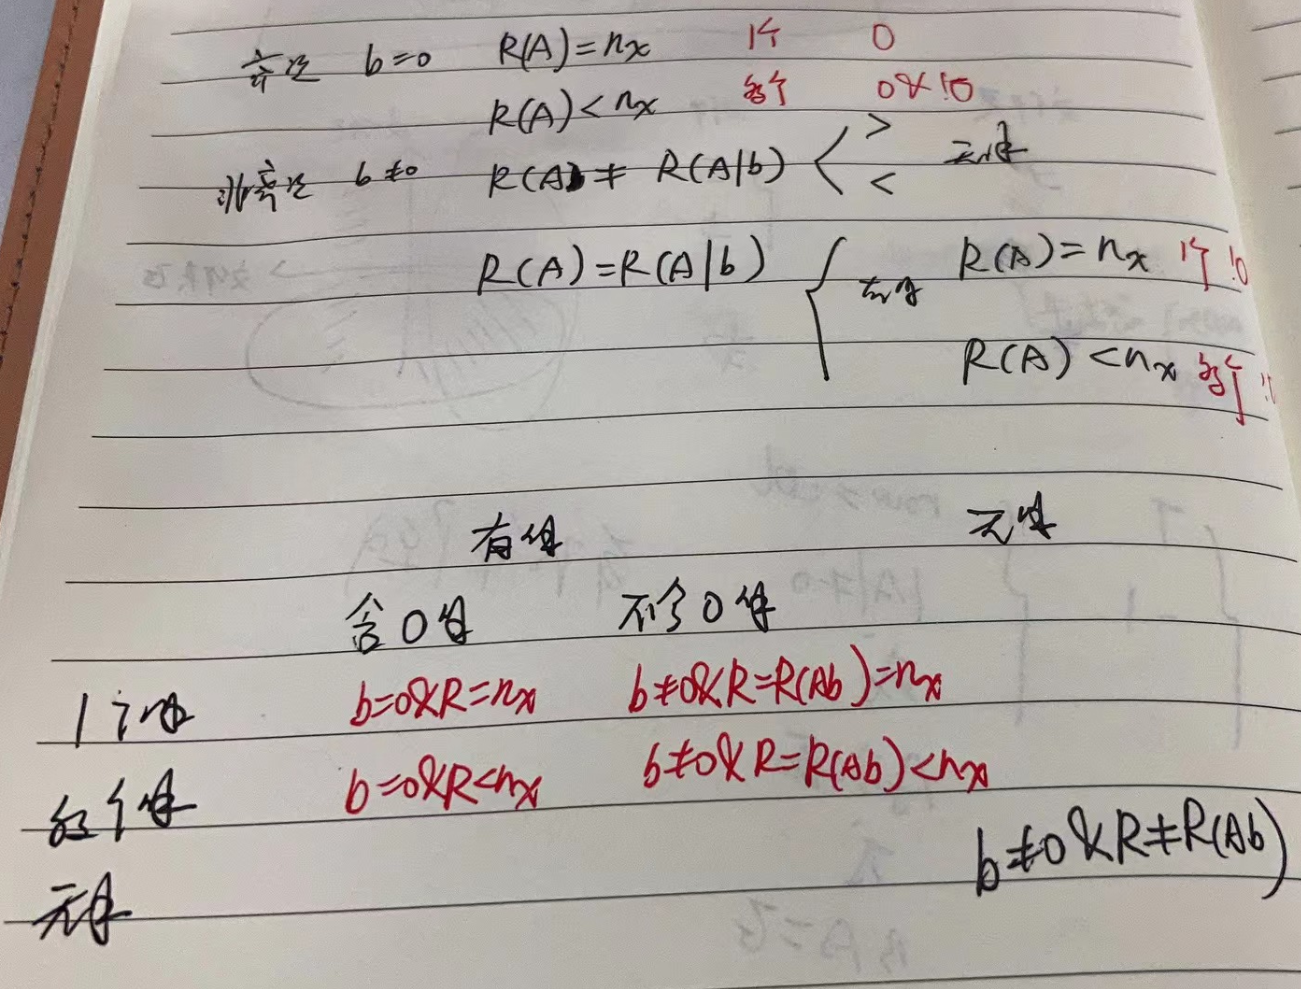 齐次 b=0 R(A)=nx 1个 0
R(A)<nx 多个 0&!0
非齐次 b≠0 R(A)≠R(A|b) > 无解
<
R(A)=R(A|b) 有解 R(A)=nx 1个 !0
R(A)<nx 多个 !0
有解 无解
含0解 不含0解
1个解 b=0&R=nx b≠0&R=R(Ab)=nx
多个解 b=0&R<nx b≠0&R=R(Ab)<nx
无解 b≠0&R≠R(Ab)